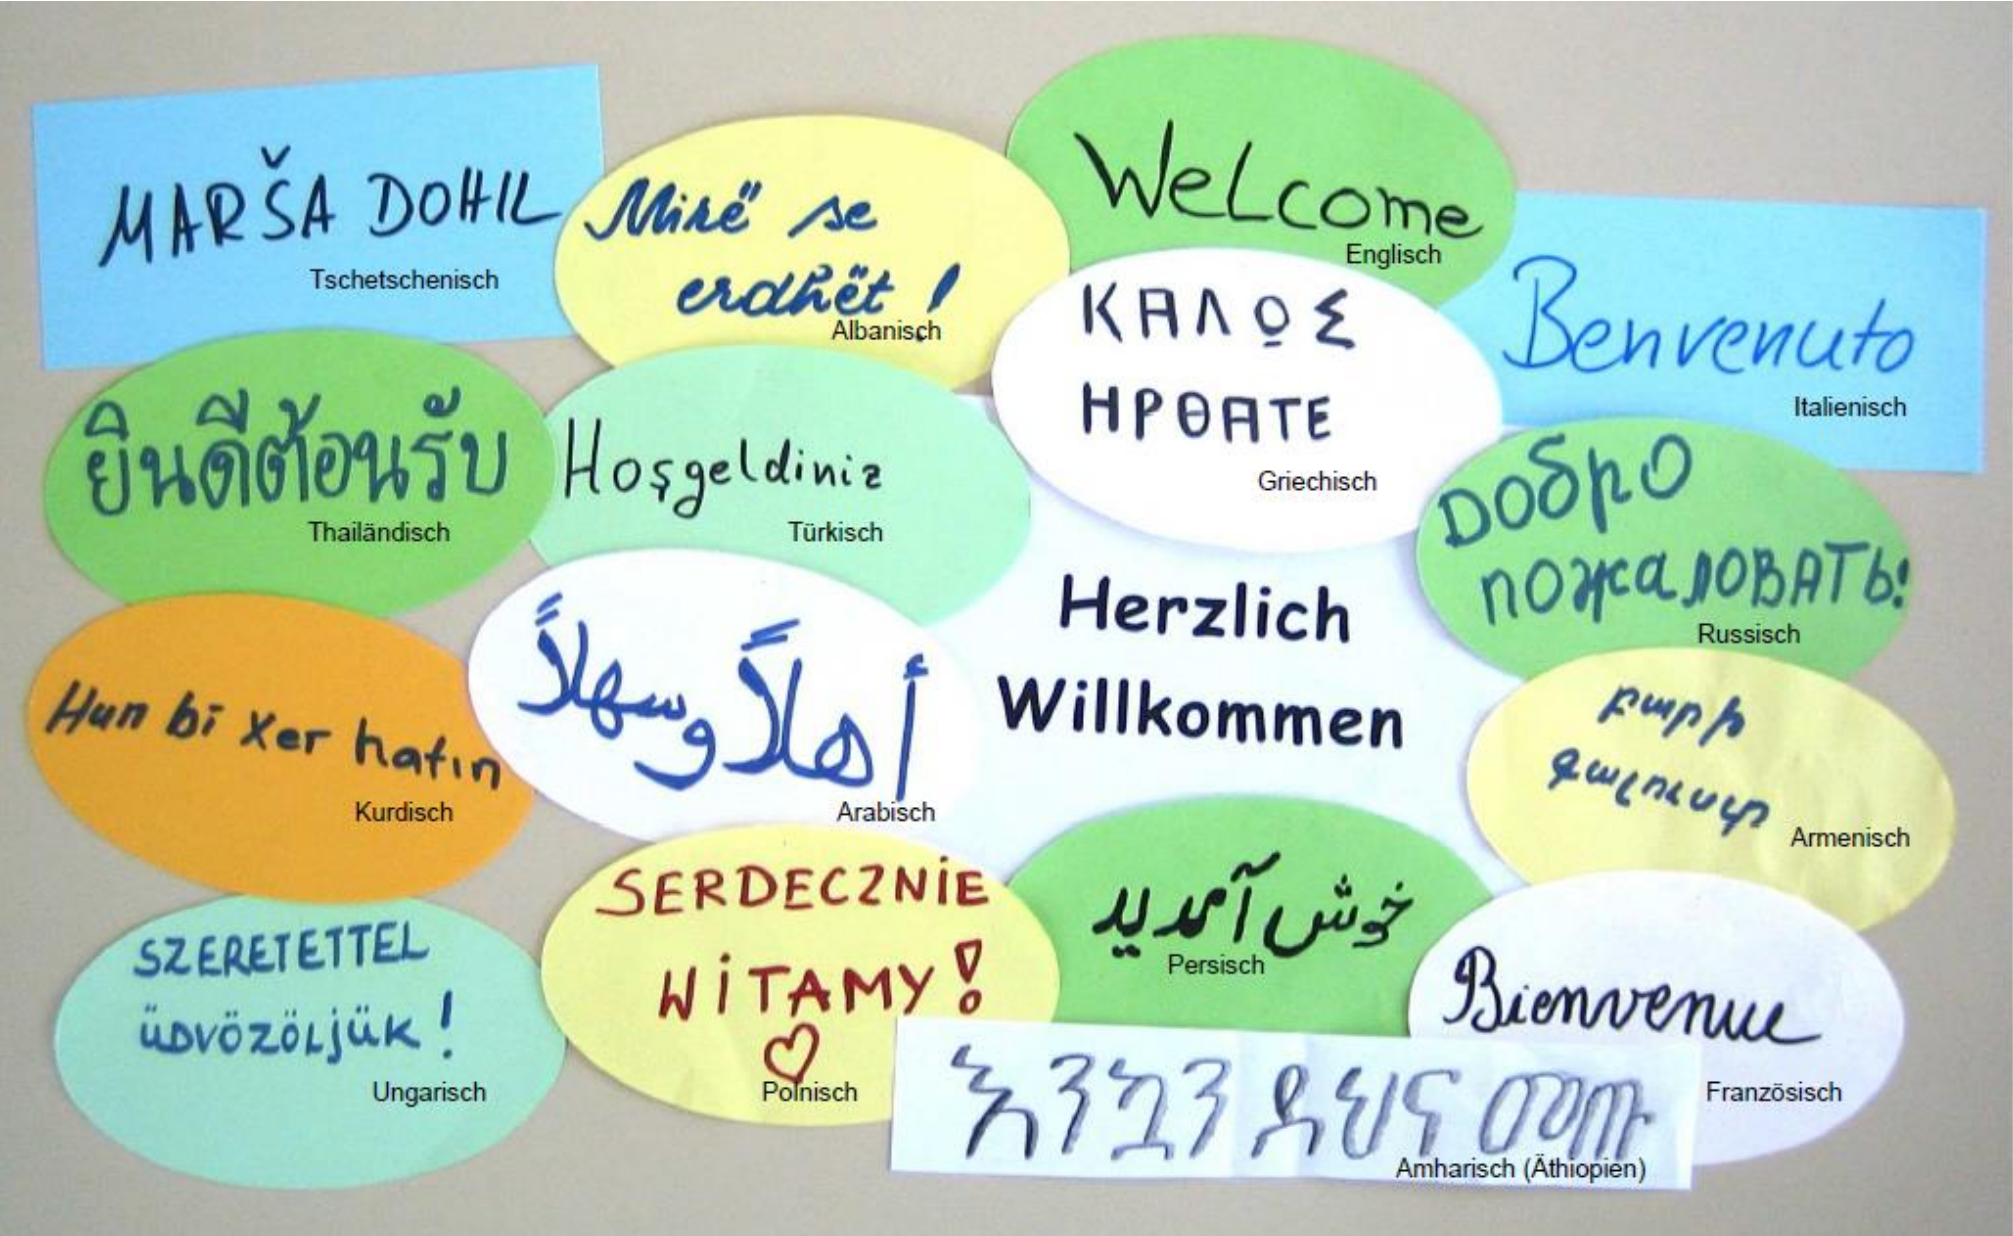 MARŠA DOHIL
Tschetschenisch
Mirë se
erdhët !
Albanisch
Welcome
Englisch
Benvenuto
Italienisch
ยินดีต้อนรับ
Thailändisch
Hoşgeldiniz
Türkisch
ΚΑΛΟΣ
ΗΡΘΑΤΕ
Griechisch
Добро
пожаловать!
Russisch
Hun bi xer hatın
Kurdisch
أهلاً وسهلاً
Arabisch
Herzlich
Willkommen
բարի
գալուստ
Armenisch
SZERETETTEL
ÜDVÖZÖLJÜK !
Ungarisch
SERDECZNIE
WITAMY !
Polnisch
خوش آمدید
Persisch
Bienvenue
Französisch
እንኳን ደህና መጡ
Amharisch (Äthiopien)